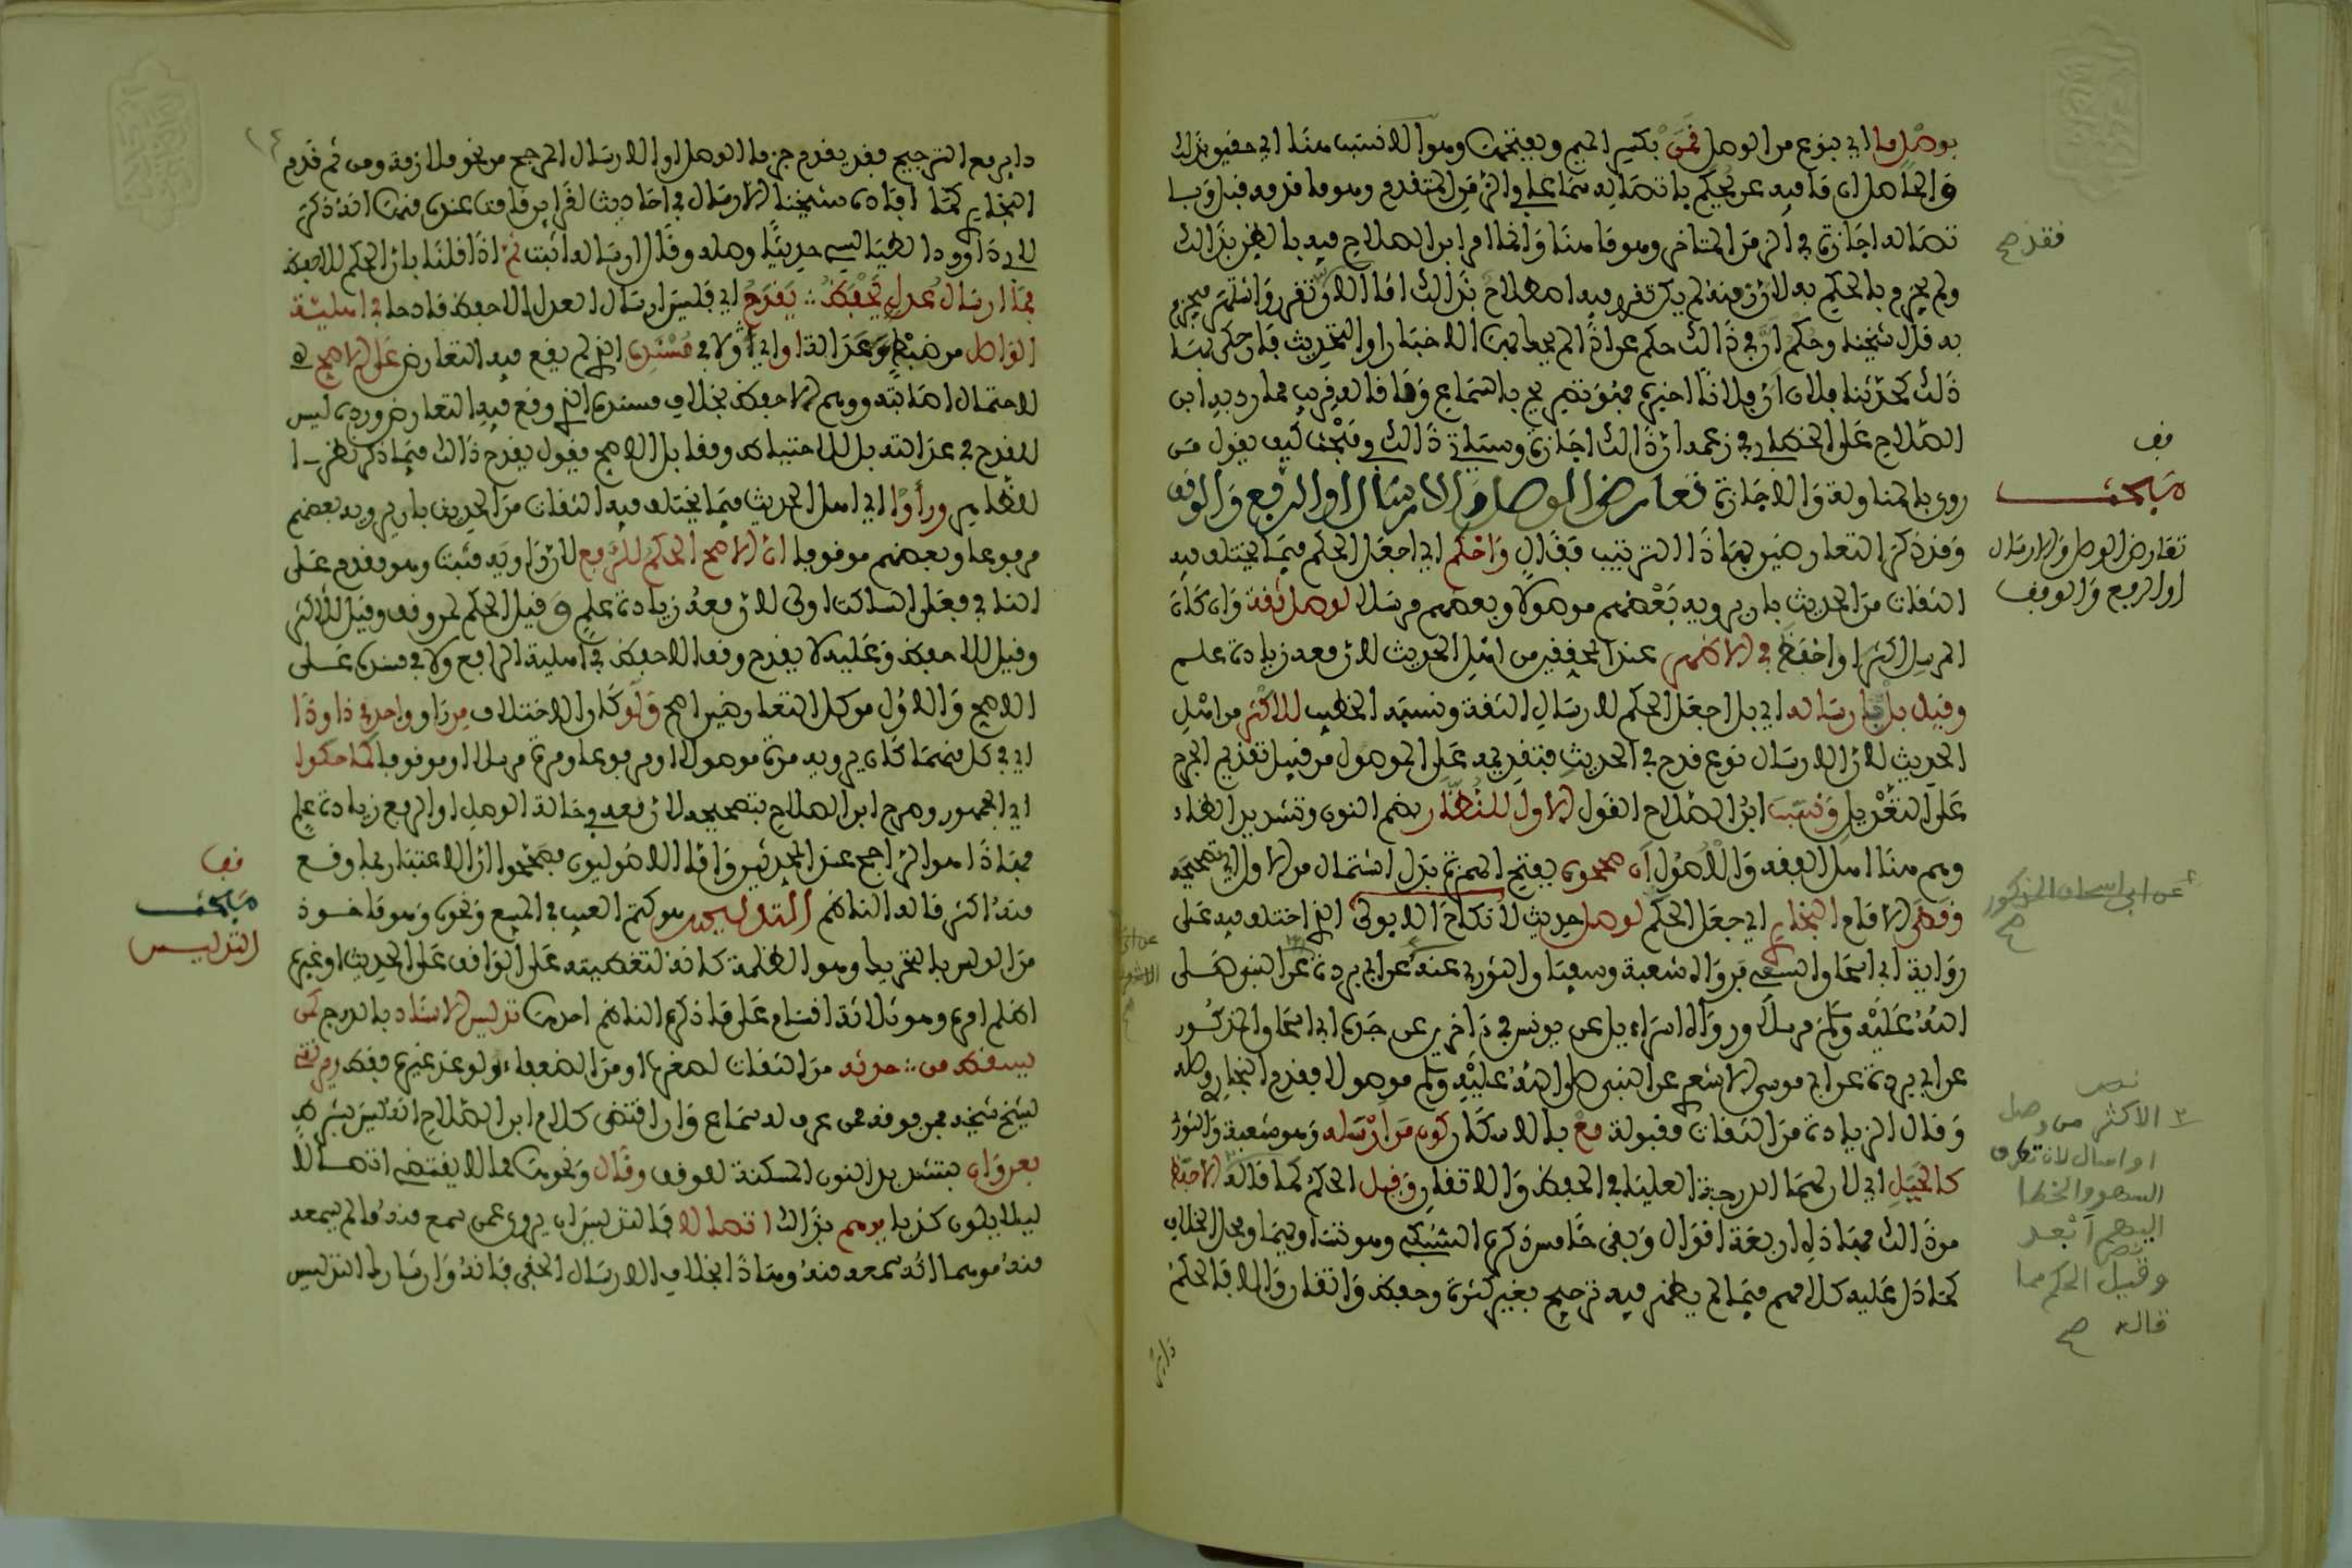 بوصل ما اي بنوع من الوصل قمن بكسر الميم وبفتحها وهو الانسب هنا اي حقيق بذلك
والحاصل ان ما فيه عن يحكم باتصاله سماعا في الزمن المتقدم وهو ما قدمه قبل وبا
تصاله اجازة في الزمن المتاخر وهو ما هنا وانما امر ابن الصلاح فيه بالظن بذلك
ولم يجزم بالحكم به لان منه لم يكن تقرر فيه اصطلاح بذلك اما الان تقرر واشتهر فيجزم
به قال شيخنا وحكم ان في ذلك حكم عن اذا لم يجيء الاخبار او التحديث فان حكى بها
ذلك كحدثنا فلان ان فلانا اخبره فهو تصريح بالسماع وما قاله قريب مما رد به ابن
الصلاح على الخطابي في زعمه ان ذلك اجازة وسياتي ذلك في مبحث كيف يقول من
روى بالمناولة والاجازة تعارض الوصل والارسال او الرفع والوقف
وقد ذكر التعارضين بهاذا الترتيب فقال واحكم اي اجعل الحكم فيما يختلف فيه
الثقات من الحديث بان يرويه بعضهم موصولا وبعضهم مرسلا لوصل ثقة وان كان
المرسل اكثر او احفظ في الاظهر عند المحققين من اهل الحديث لان معه زيادة علم
وقيل بل ارساله اي بل اجعل الحكم لارسال الثقة ونسبه الخطيب للاكثر من اهل
الحديث لان الارسال نوع قدح في الحديث فتقديمه على الموصول من قبيل تقديم الجرح
على التعديل ونسب ابن الصلاح القول الاول للنظار بضم النون وتشديد الظاء
وهم هنا اهل الفقه والاصول ان صححوه بفتح الهمزة بدل اشتمال من الاول اي تصحيحه
وقضى الامام البخاري اي جعل الحكم لوصل حديث لا نكاح الا بولي الذي اختلف فيه على
رواية ابي اسحاق السبيعي فرواه شعبة وسفيان الثوري عنه عن ابي بردة عن النبي صلى
الله عليه وسلم مرسلا ورواه اسراءيل عن يونس في اخرين عن جده ابي اسحاق المذكور
عن ابي بردة عن ابي موسى الاشعري عن النبي صلى الله عليه وسلم موصولا فقدم البخاري وصله
وقال الزيادة من الثقات مقبولة مع بالاسكان كون من ارسله وهو شعبة والثوري
كالجبل اي لان لهما الدرجة العليا في الحفظ والاتقان وقيل الحكم لما قاله الاحفظ
من ذلك فهاذه اربعة اقوال وبقي خامس ذكره السبكي وهو تساويهما ومحل الخلاف
كما دل عليه كلامهم فيما لم يظهر فيه ترجيح بغير كثرة وحفظ واتقان والا فالحكم
دائر
فقد صح
قف
مبحث
تعارض الوصل والارسال
او الرفع والوقف
عن ابي اسحاق المذكور
صح
الاكثر من وصل
او ارسال لان تطرق
السهو والخطا
اليهم ابعد
وقيل الحكم لما
قاله صح
دائر مع الترجيح فقد يقدم جزما الوصل او الارسال لمرجح من نحو ملازمة ومن ثم قدم
البخاري كما افاده شيخنا الارسال في احاديث لقراين قامت عنده منها انه ذكر
لابي داوود الطيالسي حديثا وصله وقال ارساله اثبت ثم اذا قلنا بان الحكم للاحفظ
فما ارسال عدل يحفظ ∴ يقدح اي فليس ارسال العدل الاحفظ قادحا في اهلية
الواصل من ضبط وعدالة او اي ولا في مسنده الذي لم يقع فيه التعارض على الاصح
لاحتمال اصابته ووهم الاحفظ بخلاف مسنده الذي وقع فيه التعارض ورده ليس
للقدح في عدالته بل للاحتياط ومقابل الاصح يقول يقدح ذلك فيما ذكر نظرا
للظاهر وراوا اي اهل الحديث فيما يختلف فيه الثقات من الحديث بان يرويه بعضهم
مرفوعا وبعضهم موقوفا ان الاصح الحكم للرفع لان راويه مثبت وهو مقدم على
النافي فعلى الساكت اولى لان معه زيادة علم وقيل الحكم لمن وقف وقيل للاكثر
وقيل للاحفظ وعليه لا يقدح وقف الاحفظ في اهلية الرافع ولا في مسنده على
الاصح والاول من كل التعارضين اصح ولو كان الاختلاف من راو واحد في ذا وذا
اي في كل منهما كان يرويه مرة موصولا او مرفوعا ومرة مرسلا او موقوفا كما حكوا
اي الجمهور وصرح ابن الصلاح بتصحيحه لان معه في حالة الوصل او الرفع زيادة علم
فهاذا هو الراجح عند المحدثين واما الاصوليون فصححوا ان الاعتبار بما وقع
منه اكثر قاله الناظم التدليس هو كتم العيب في المبيع ونحوه وهو ماخوذ
من الدلس بالتحريك وهو الظلمة كانه لتغطيته على الواقف على الحديث او غيره
اظلم امره وهو ثلاثة اقسام على ما ذكره الناظم احدها تدليس الاسناد بالدرج كمن
يسقط من ∴ حدثه من الثقات لصغره او من الضعفاء ولو عند غيره فقط
لشيخ شيخه فمن فوقه ممن عرف له سماع وان اقتضى كلام ابن الصلاح انه ليس بشرط
بعن وان بتشديد النون المسكنة للوقف وقال ونحوها مما لا يقتضي اتصالا
ليلا يكون كذبا يوهم بذلك اتصالا فالتدليس ان يروي عمن سمع منه ما لم يسمعه
منه موهما انه سمعه منه وهاذا بخلاف الارسال الخفي فانه وان شارك التدليس
قف
مبحث
التدليس